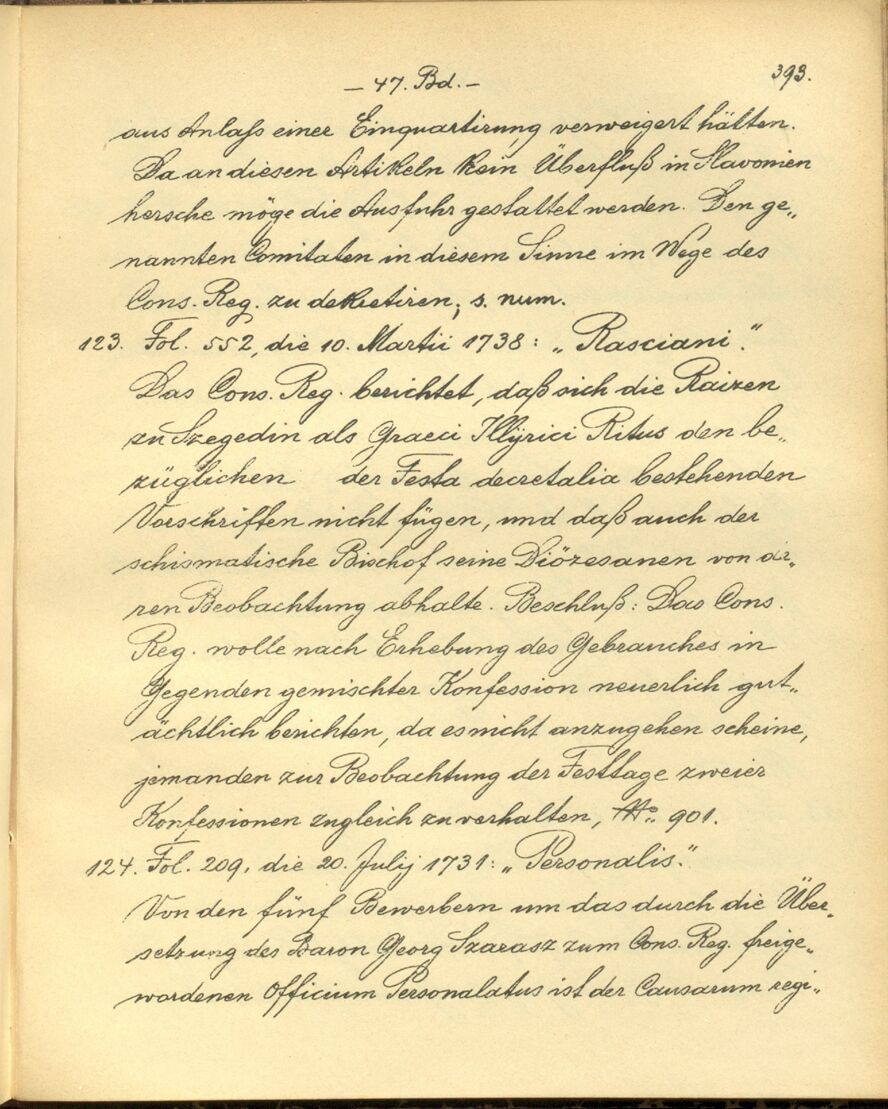 — 47. Bd. —
393.
aus Anlaß einer Einquartirung verweigert hätten.
Da an diesen Artikeln kein Überfluß in Slavonien
hersche möge die Ausfuhr gestattet werden. Den ge„
nannten Comitaten in diesem Sinne im Wege des
Cons. Reg. zu dekretiren; s. num.
123. Fol. 552, die 10. Martii 1738: „Rasciani“.
Das Cons. Reg. berichtet, daß sich die Raizen
zu Szegedin als Graeci Illÿrici Ritus den be„
züglichen der Festa decretalia bestehenden
Vorschriften nicht fügen, und daß auch der
schismatische Bischof seine Diözesanen von de„
ren Beobachtung abhalte. Beschluß: Das Cons.
Reg. wolle nach Erhebung des Gebrauches in
Gegenden gemischter Konfession neuerlich gut„
ächtlich berichten, da es nicht anzugehen scheine,
jemanden zur Beobachtung der Festtage zweier
Konfessionen zugleich zu verhalten, No. 901.
124. Fol. 209, die 20. Julij 1731: „Personalis“.
Von den fünf Bewerbern um das durch die Über„
setzung des Baron Georg Szarasz zum Cons. Reg. freige„
wordenen Officium Personalatus ist der Causarum regi„